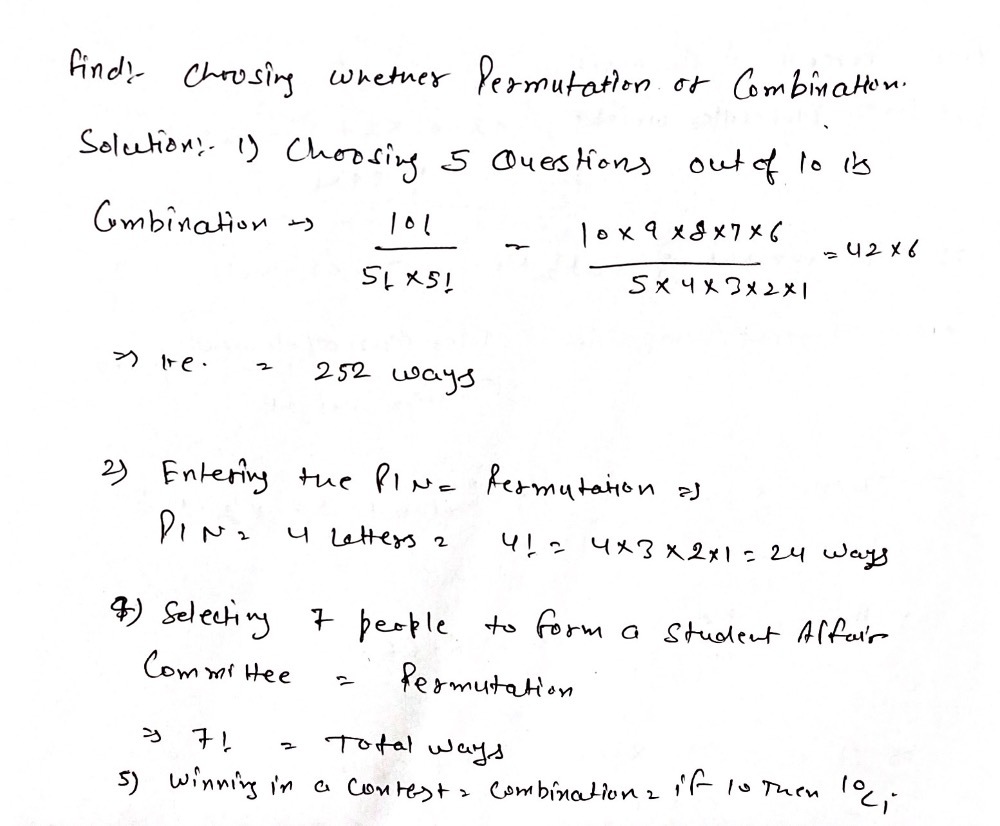 Find:- Choosing whether Permutation or Combination.
Solution:- 1) Choosing 5 Questions out of 10 is
Combination → 10! / 5! × 5! = 10 × 9 × 8 × 7 × 6 / 5 × 4 × 3 × 2 × 1 = 42 × 6
⇒ i.e. = 252 ways
2) Entering the PIN = Permutation ⇒
PIN = 4 Letters = 4! = 4 × 3 × 2 × 1 = 24 ways
4) Selecting 7 people to form a Student Affair
Committee = Permutation
⇒ 7! = Total ways
5) Winning in a Contest = Combination = if 10 Then 10C1.